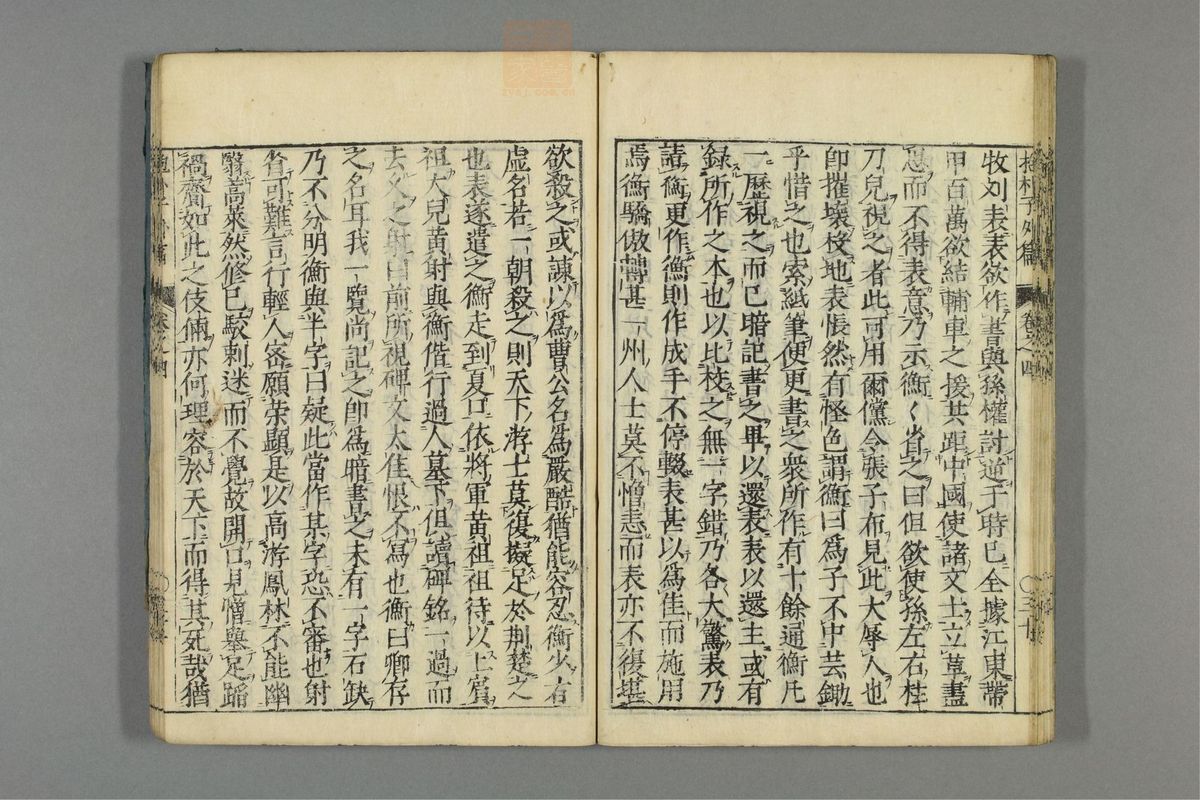 牧刘表表欲作書與孫權討逆于時巳全據江東帶
甲百萬欲結輔車之援共距中國使諸文士立草盡
思而不得表意乃示衡〱省之曰但欲使孫左右持
刀兒視之者此可用爾儻令張子布見此大辱人也
即摧壞投地表悵然有怪色謂衡曰爲子不中芸鋤
乎惜之也索紙筆便更書之衆所作有十餘通衡凡
一歷視之而已暗記書之畢以還表表以還主或有
録所作之本也以比校之無一字錯乃各大驚表乃
請衡更作衡則作成手不停輟表甚以爲佳而施用
焉衡驕傲轉甚一州人士莫不憎恚而表亦不復堪
欲殺之或諫以爲曹公名爲嚴酷猶能容忍衡少有
虚名若一朝殺之則天下游士莫復擬足於荆楚之
也表遂遣之衡走到夏口依將軍黄祖祖待以上賓
祖大兒黄射與衡偕行過人墓下但讀碑銘一過而
去久之射曰前所視碑文太佳恨不寫也衡曰卿存
之名耳我一覽尚記之即爲暗書之末有一字石缺
乃不分明衡與半字曰疑此當作某字恐不審也射
省可難言行輕人密願荣顯是以高游鳳林不能幽
翳蒿萊然修己駁刺迷而不覺故開口見憎舉足蹈
禍齎如此之伎倆亦何理容於天下而得其死哉猶
抱朴子外篇
卷之四